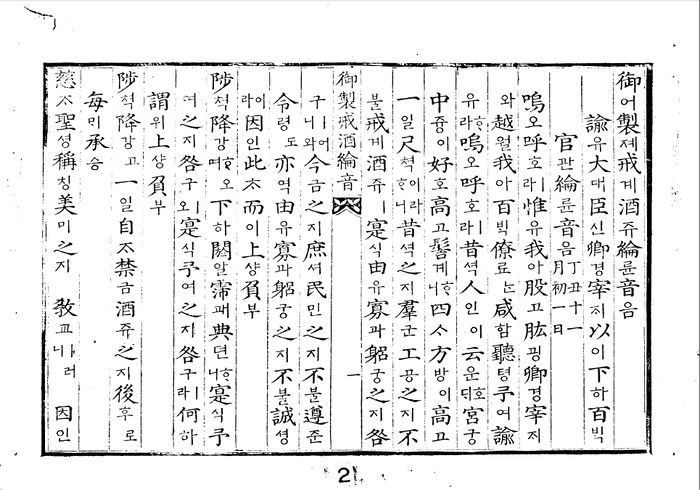 御어製졔戒계酒쥬綸륜音음
諭유大대臣신卿경宰ᄌᆡ以이下하百ᄇᆡᆨ
官관綸륜音음 丁丑十一
月初一日
嗚오呼호ㅣ라惟유我아股고肱굉卿경宰ᄌᆡ
와越월我아百ᄇᆡᆨ僚료ᄂᆞᆫ咸함聽텽予여諭
유ᄒᆞ라嗚오呼호ㅣ라昔셕人인이云운호ᄃᆡ宮궁
中즁이好호高고髻계ᄒᆞ니四ᄉᆞ方방이高고
一일尺쳑이라ᄒᆞ니昔셕之지羣군工공之지不
불戒계酒쥬ㅣ寔식由유寡과躬궁之지咎
御製戒酒綸音 一
구ㅣ어니와今금之지庶셔民민之지不불遵준
令령도亦역由유寡과躬궁之지不불誠셩
이라因인此ᄎᆞ而이上샹負부
陟쳑降강ᄒᆞ오며下하閼알霈패典뎐ᄒᆞ니寔식予
여之지咎구ㅣ오寔식予여之지咎구ㅣ라何하
謂위上샹負부
陟쳑降강고一일自ᄌᆞ禁금酒쥬之지後후로
每ᄆᆡ承승
慈ᄌᆞ聖셩稱칭美미之지敎교ㅣ러니因인
2